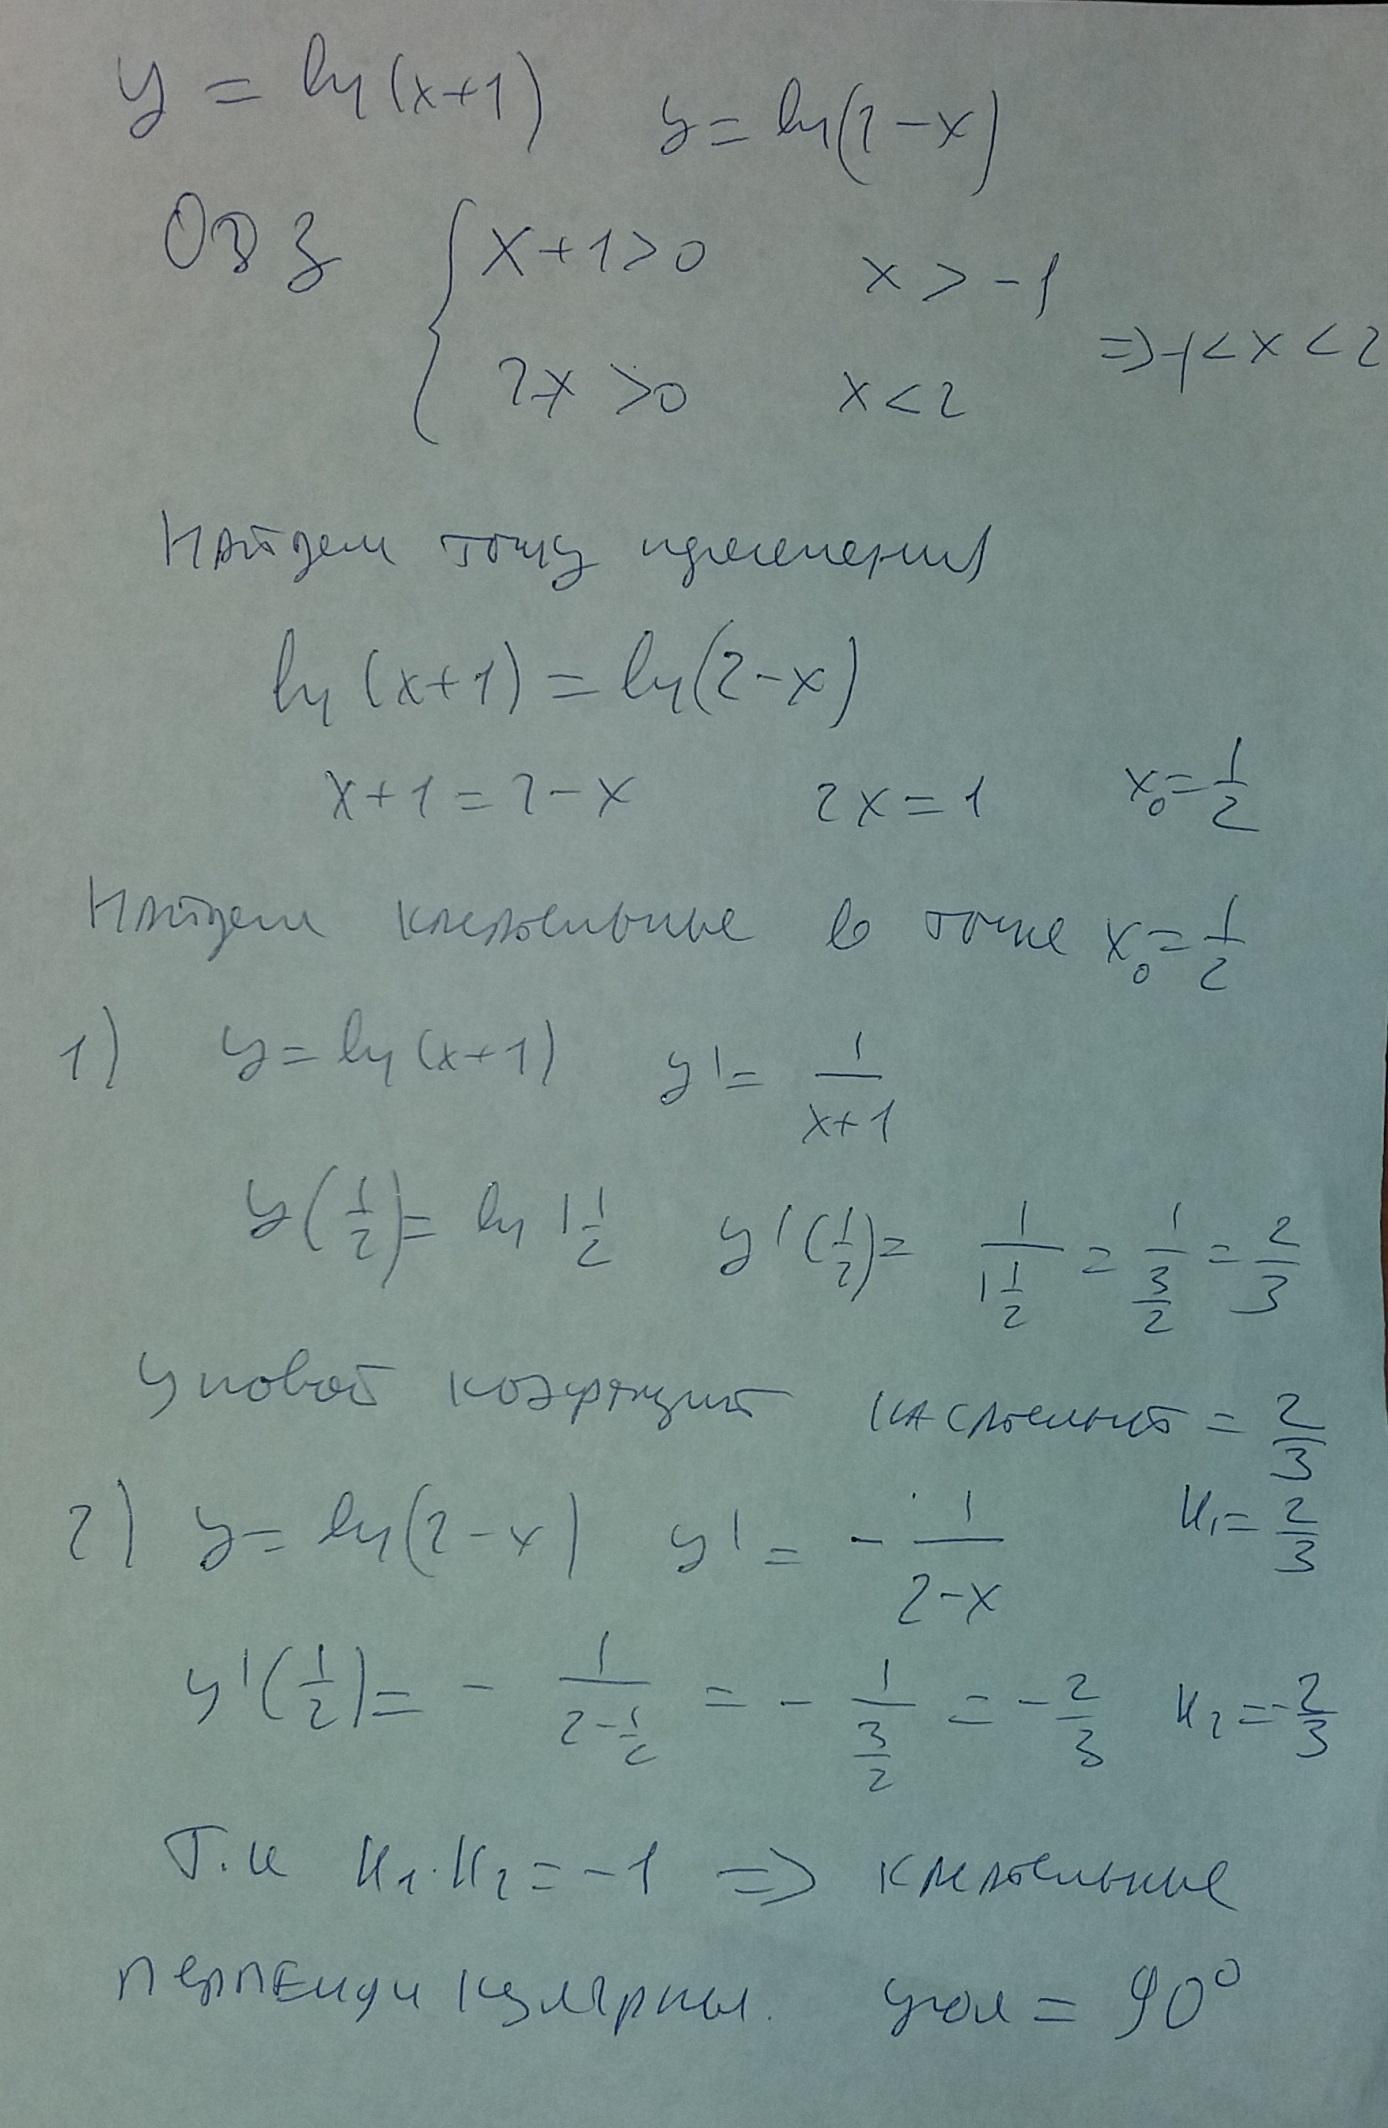 y = ln(x+1) y = ln(2-x)
ОДЗ { x+1>0 x > -1
2-x >0 x<2 => -1<x<2
Найдем точку пересечения
ln(x+1) = ln(2-x)
x+1 = 2-x 2x = 1 x₀ = 1/2
Найдем касательные в точке x₀ = 1/2
1) y = ln(x+1) y' = 1/(x+1)
y(1/2) = ln 1 1/2 y'(1/2) = 1/(1 1/2) = 1/(3/2) = 2/3
Угловой коэфициент касательной = 2/3
K₁ = 2/3
2) y = ln(2-x) y' = - 1/(2-x)
y'(1/2) = - 1/(2-1/2) = - 1/(3/2) = - 2/3 K₂ = -2/3
Т.к K₁·K₂ = -1 => касательные
перпендикулярны. угол = 90°